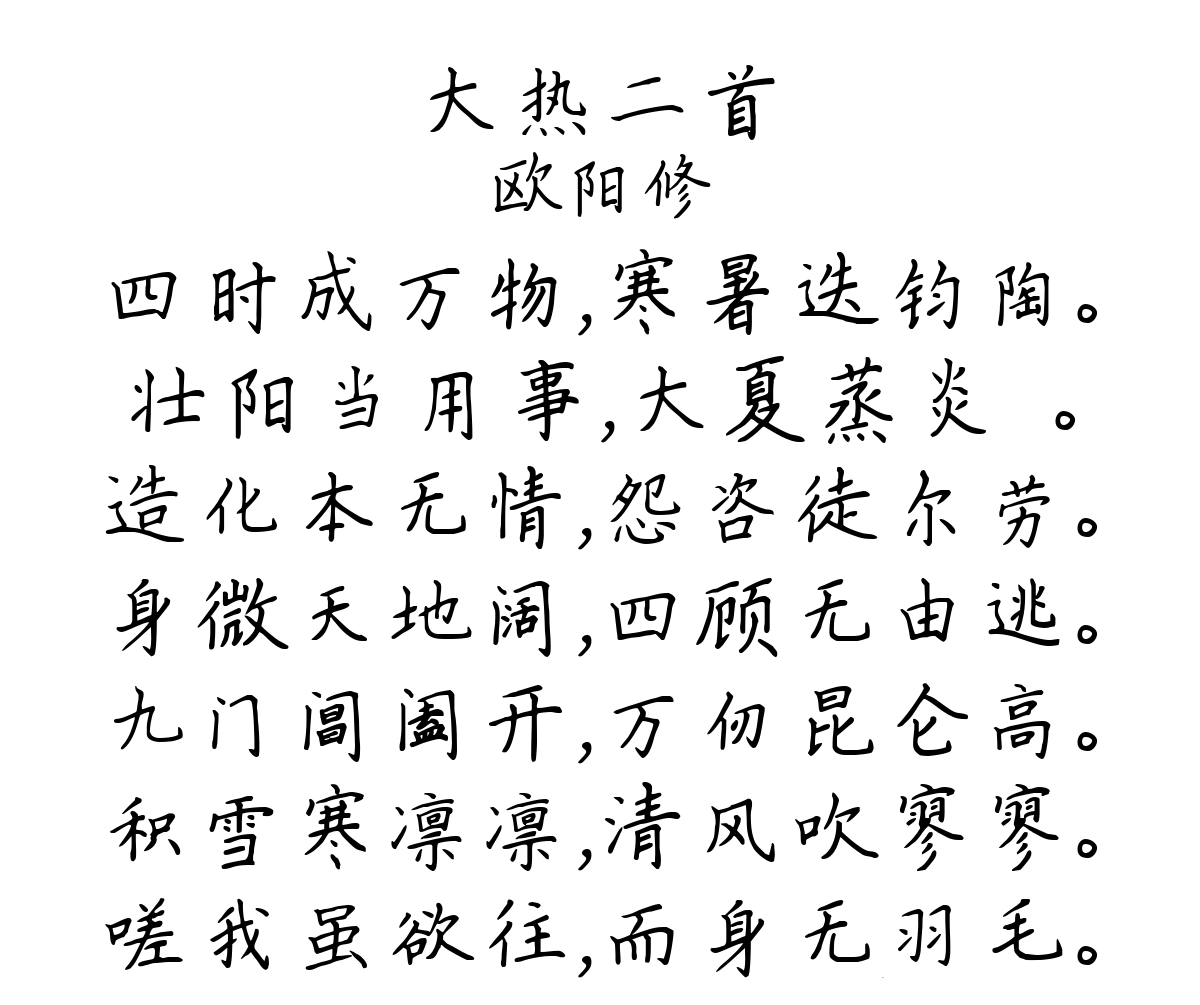 大热二首
欧阳修
四时成万物,寒暑迭钧陶。
壮阳当用事,大夏蒸炎 。
造化本无情,怨咨徒尔劳。
身微天地阔,四顾无由逃。
九门阊阖开,万仞昆仑高。
积雪寒凛凛,清风吹寥寥。
嗟我虽欲往,而身无羽毛。